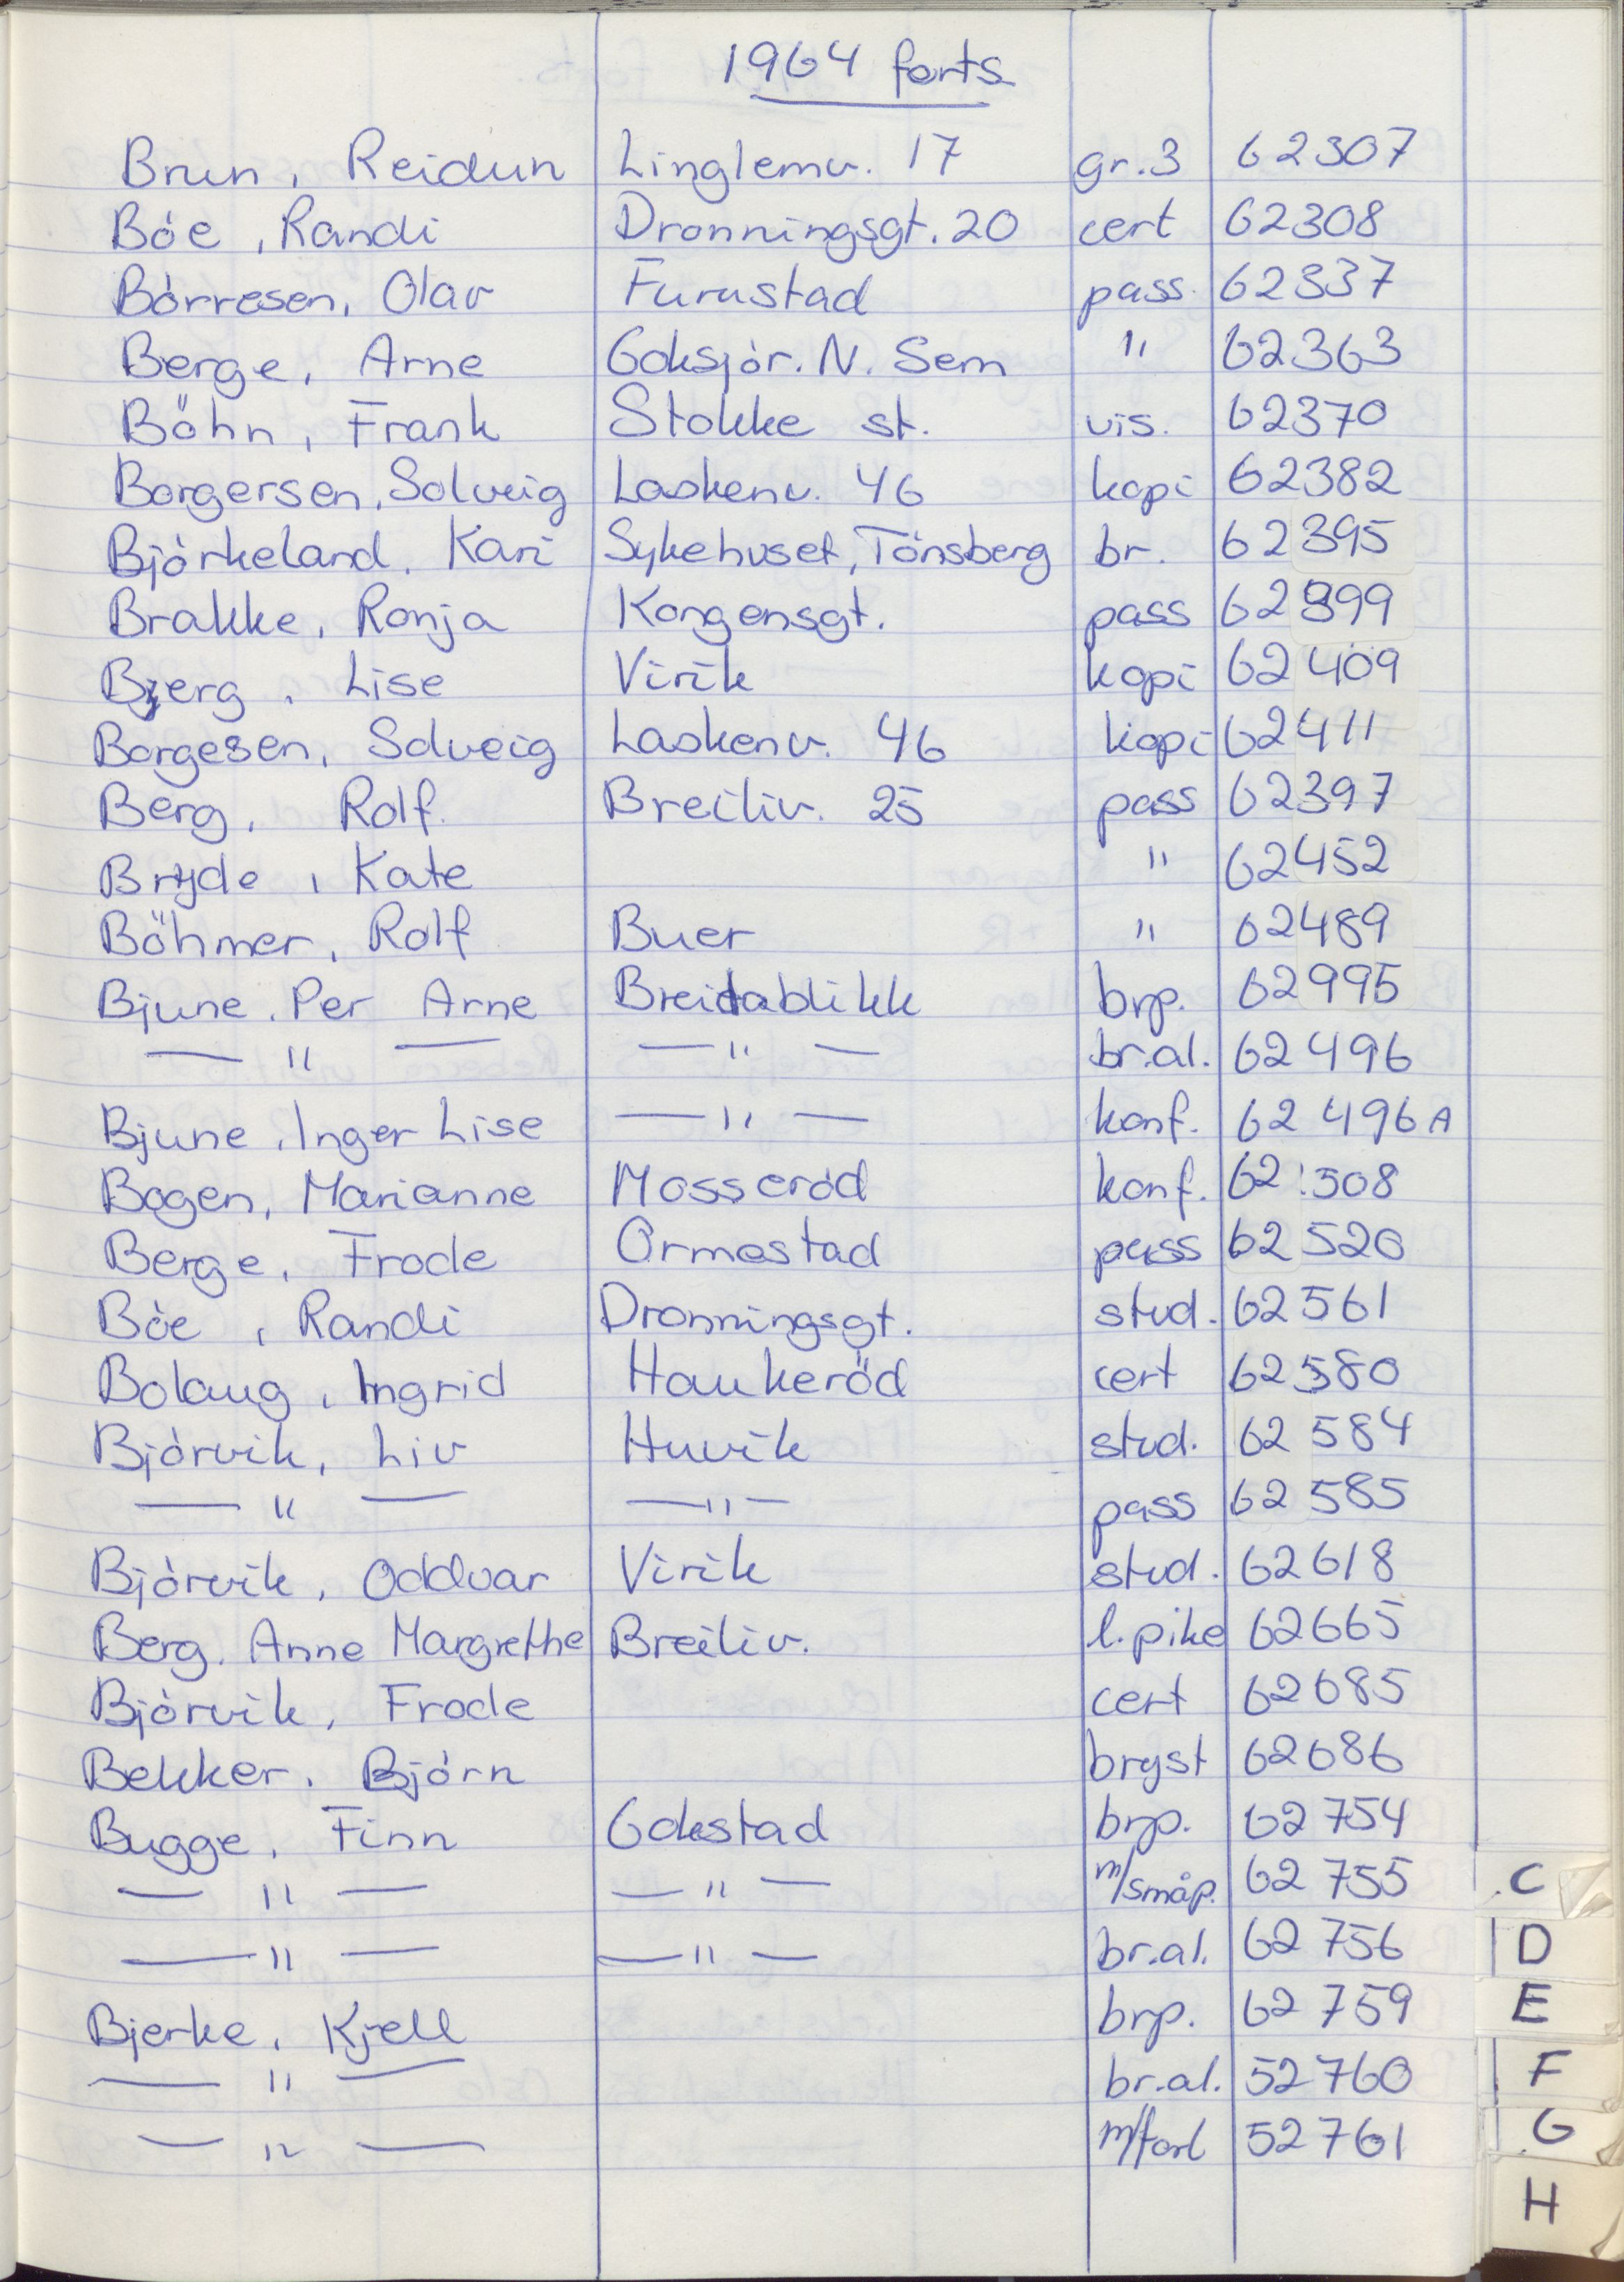 1964 forts
Brun, Reidun Linglemv. 17 gr.3 62307
Bóe, Randi Dronningsgt. 20 cert 62308
Bórresen, Olav Furustad pass. 62337
Berge, Arne Goksjór. N. Sem " 62363
Böhn, Frank Stokke st. vis. 62370
Borgersen, Solveig Laskenv. 46 kopi 62382
Bjórkeland, Kari Sykehuset, Tónsberg br. 62395
Brakke, Ronja Kongensgt. pass 62399
Bjerg, Lise Virik kopi 62409
Borgesen, Solveig Laskenv. 46 kopi 62411
Berg, Rolf. Breiliv. 25 pass 62397
Bryde, Kate " 62452
Böhmer, Rolf Buer " 62489
Bjune, Per Arne Breidablikk brp. 62995
— " — — " — br.al. 62496
Bjune, Inger Lise — " — konf. 62 496 A
Bogen, Marianne Mosseród konf. 62 508
Berge, Frode Ormestad pass 62 520
Bóe, Randi Dronningsgt. stud. 62561
Bolaug, Ingrid Haukeröd cert 62580
Bjórvik, Liv Huvik stud. 62 584
— " — — " — pass 62 585
Bjórvik, Oddvar Virik stud. 62618
Berg, Anne Margrethe Breiliv. l.pike 62665
Bjórvik, Frode cert 62685
Bekker, Bjórn bryst 62686
Bugge, Finn Gokstad brp. 62 754
— " — — " — m/småp. 62 755
— " — — " — br.al. 62 756
Bjerke, Kjell brp. 62 759
— " — br.al. 52760
— " — m/forl 52761
C
D
E
F
G
H